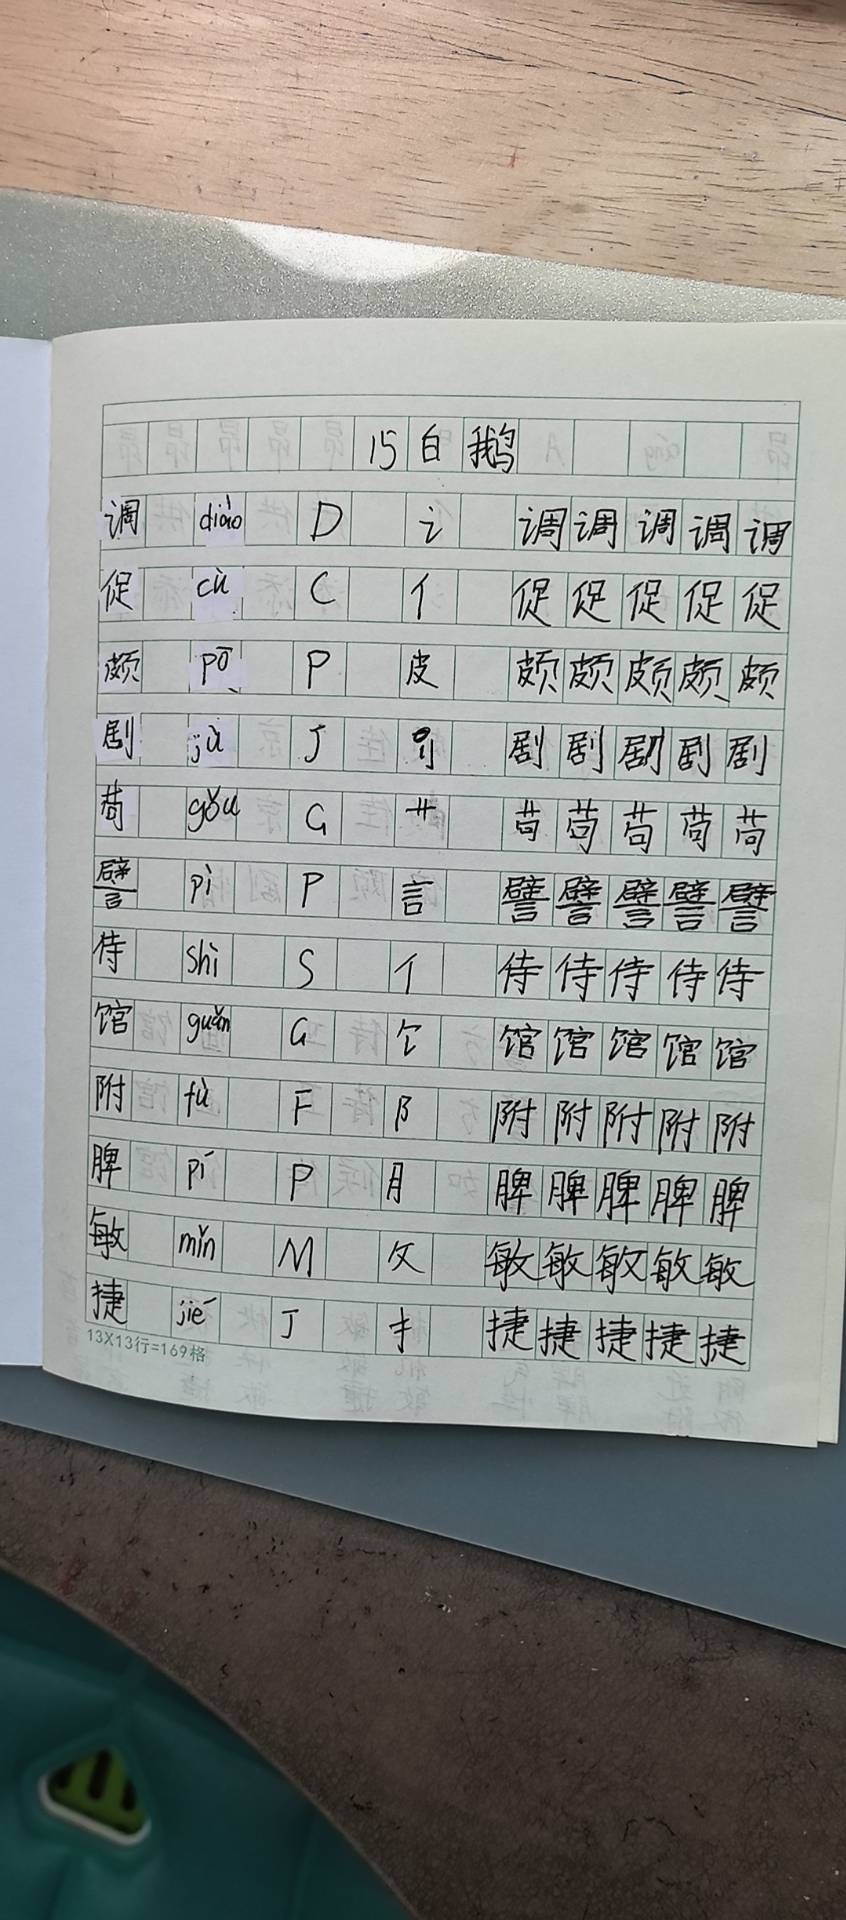 15 白鹅
调 diào D 讠 调 调 调 调 调
促 cù C 亻 促 促 促 促 促
颇 pō P 皮 颇 颇 颇 颇 颇
剧 jù J 刂 剧 剧 剧 剧 剧
苟 gǒu G 艹 苟 苟 苟 苟 苟
譬 pì P 言 譬 譬 譬 譬 譬
侍 shì S 亻 侍 侍 侍 侍 侍
馆 guǎn G 饣 馆 馆 馆 馆 馆
附 fù F 阝 附 附 附 附 附
脾 pí P 月 脾 脾 脾 脾 脾
敏 mǐn M 攵 敏 敏 敏 敏 敏
捷 jié J 扌 捷 捷 捷 捷 捷
13X13行=169格